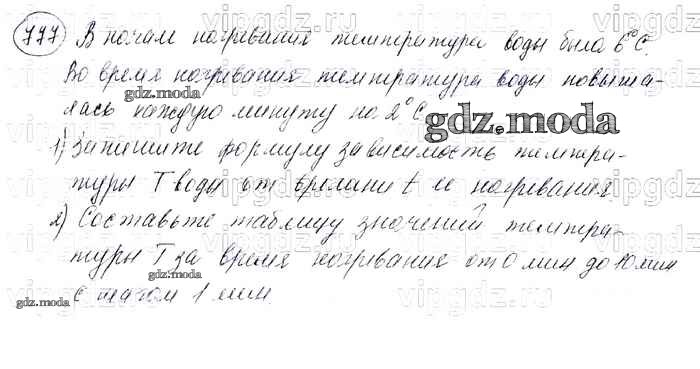 777 В начале нагревания температура воды была 6°С.
Во время нагревания температура воды повыша-
лась каждую минуту на 2°С
gdz.moda
1) Запишите формулу зависимость темпера-
туры T воды от времени t ее нагревания.
2) Составьте таблицу значений темпера-
туры T за время нагревания от 0 мин до 10 мин
с шагом 1 мин.